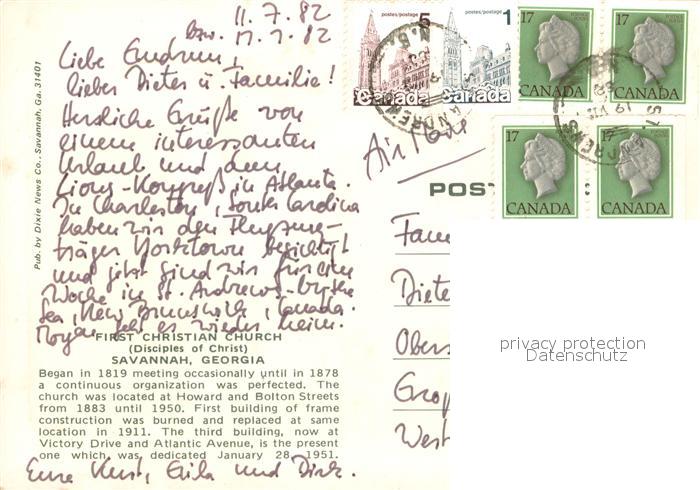 11.7.82
bzw. 17.7.82
Liebe Gudrun,
lieber Dieter u. Familie!
Herzliche Grüße von
einem interessanten
Urlaub und dem
Lions-Kongreß in Atlanta.
In Charleston, South Carolina
haben wir den Flugzeug-
träger Yorktown besichtigt
und jetzt sind wir für eine
Woche in St. Andrews-by-the
Sea, New Brunswick, Canada.
Morgen geht es wieder heim.
FIRST CHRISTIAN CHURCH
(Disciples of Christ)
SAVANNAH, GEORGIA
Began in 1819 meeting occasionally until in 1878
a continuous organization was perfected. The
church was located at Howard and Bolton Streets
from 1883 until 1950. First building of frame
construction was burned and replaced at same
location in 1911. The third building, now at
Victory Drive and Atlantic Avenue, is the present
one which was dedicated January 28, 1951.
Eure Kurt, und Dirk.
Pub. by Dixie News Co., Savannah, Ga. 31401
postes/postage 5
Canada
postes/postage 1
Canada
17
CANADA
17
CANADA
17
CANADA
17
CANADA
ST. ANDREWS
Air Mail
POST
Fam
Dieter
Obers
Groß
West
privacy protection
Datenschutz